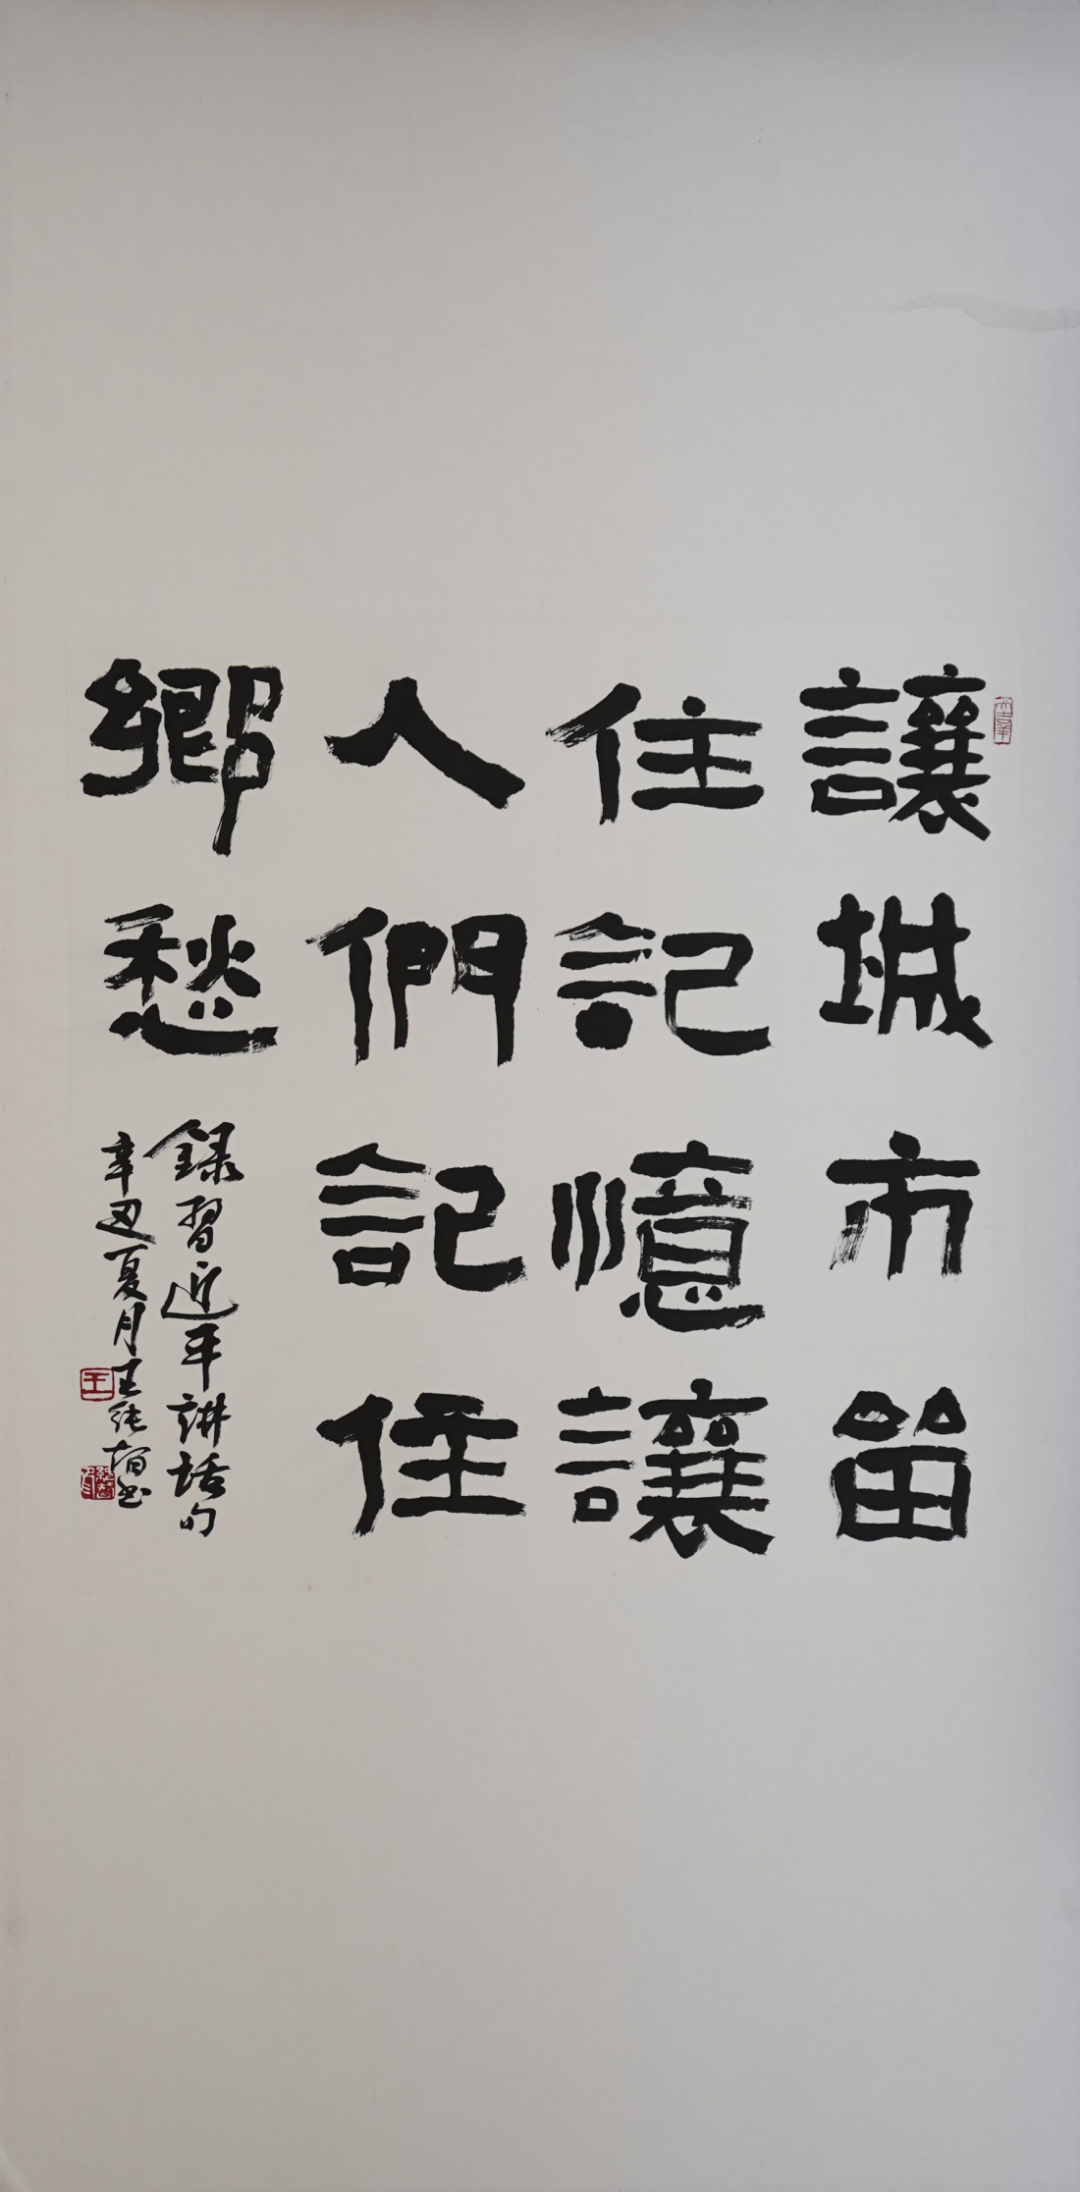 讓城市留
住記憶讓
人們記住
鄉愁
錄習近平講話句
辛丑夏月王純
書
王